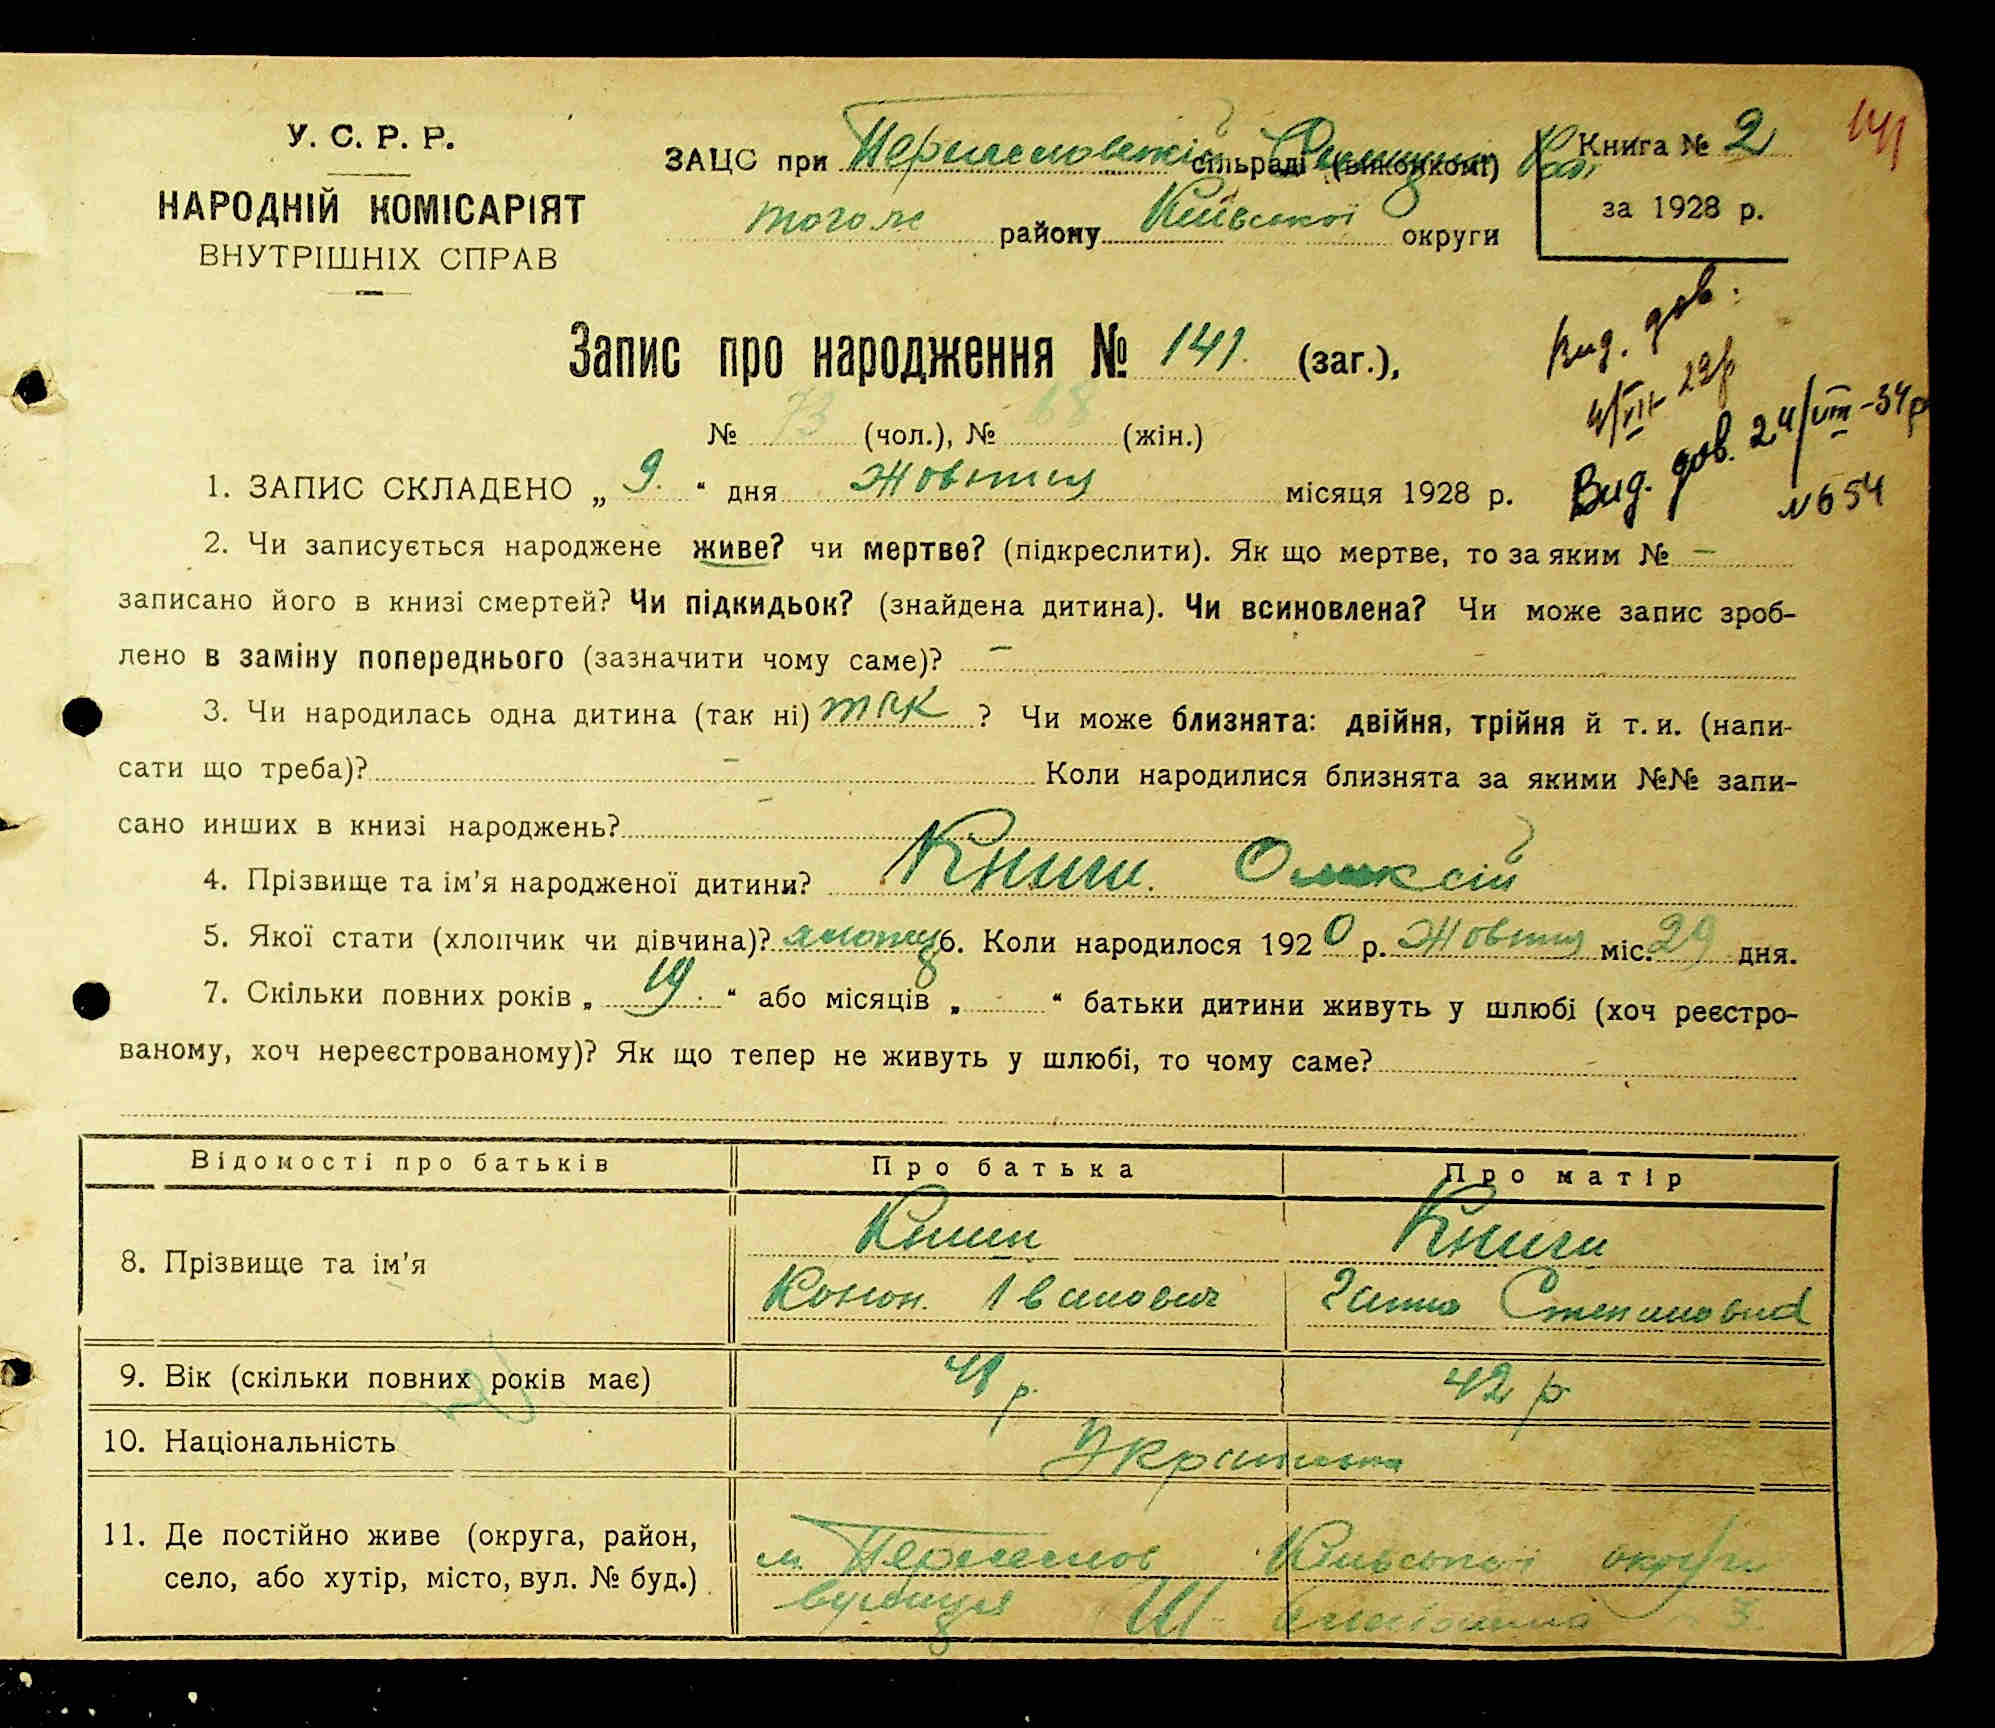 У. С. Р. Р.
НАРОДНІЙ КОМІСАРІЯТ
ВНУТРІШНІХ СПРАВ
ЗАЦС при сільраді (виконкомі)
того ж району Київської округи
Книга № 2
за 1928 р.
141
Запис про народження № 141. (заг.),
№ 73 (чол.), № 68 (жін.)
Вид. дов.
Вид. дов. 24/VIII-34 р
№ 654
1. ЗАПИС СКЛАДЕНО „ 9. “ дня Жовтня місяця 1928 р.
2. Чи записується народжене живе? чи мертве? (підкреслити). Як що мертве, то за яким № –
записано його в книзі смертей? Чи підкидьок? (знайдена дитина). Чи всиновлена? Чи може запис зроб-
лено в заміну попереднього (зазначити чому саме)? –
3. Чи народилась одна дитина (так ні) так ? Чи може близнята: двійня, трійня й т. и. (напи-
сати що треба)? – Коли народилися близнята за якими №№ запи-
сано инших в книзі народжень? –
4. Прізвище та ім’я народженої дитини? Книги. Олексій
5. Якої стати (хлопчик чи дівчина)? 6. Коли народилося 1920 р. Жовтня міс. 29 дня.
7. Скільки повних років „ 19 “ або місяців „ “ батьки дитини живуть у шлюбі (хоч реєстро-
ваному, хоч нереєстрованому)? Як що тепер не живуть у шлюбі, то чому саме?
Відомості про батьків Про батька Про матір
8. Прізвище та ім’я Книги
Конон. Іванович Ганна Степановна
9. Вік (скільки повних років має) 42 р
10. Національність Українська
11. Де постійно живе (округа, район, м Переяслов Київської округи
село, або хутір, місто, вул. № буд.) вулиця Ш 3.